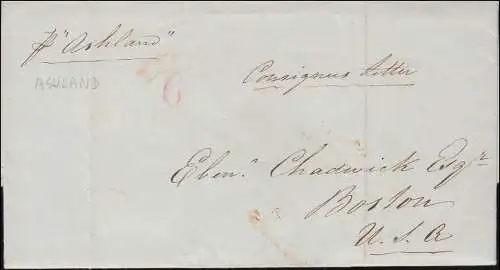 p "Ashland"
ASHLAND
6
Consignees Letter
Eben. Chadwick Esqr
Boston
U. S. A